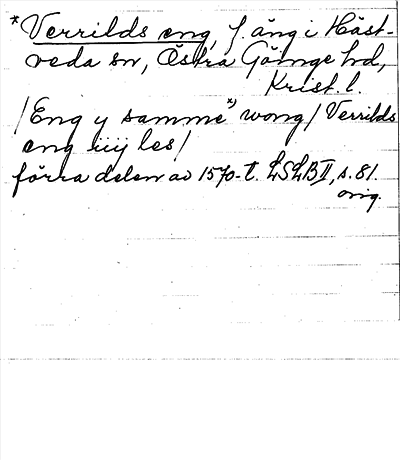 *Verrilds eng, f. äng i Häst-
veda sn, Östra Göinge hd,
Krist. l.
/Eng y samme*) wong/ Verrilds
eng iiij les/
förra delen av 1570-t. LSLB II, s. 81.
orig.